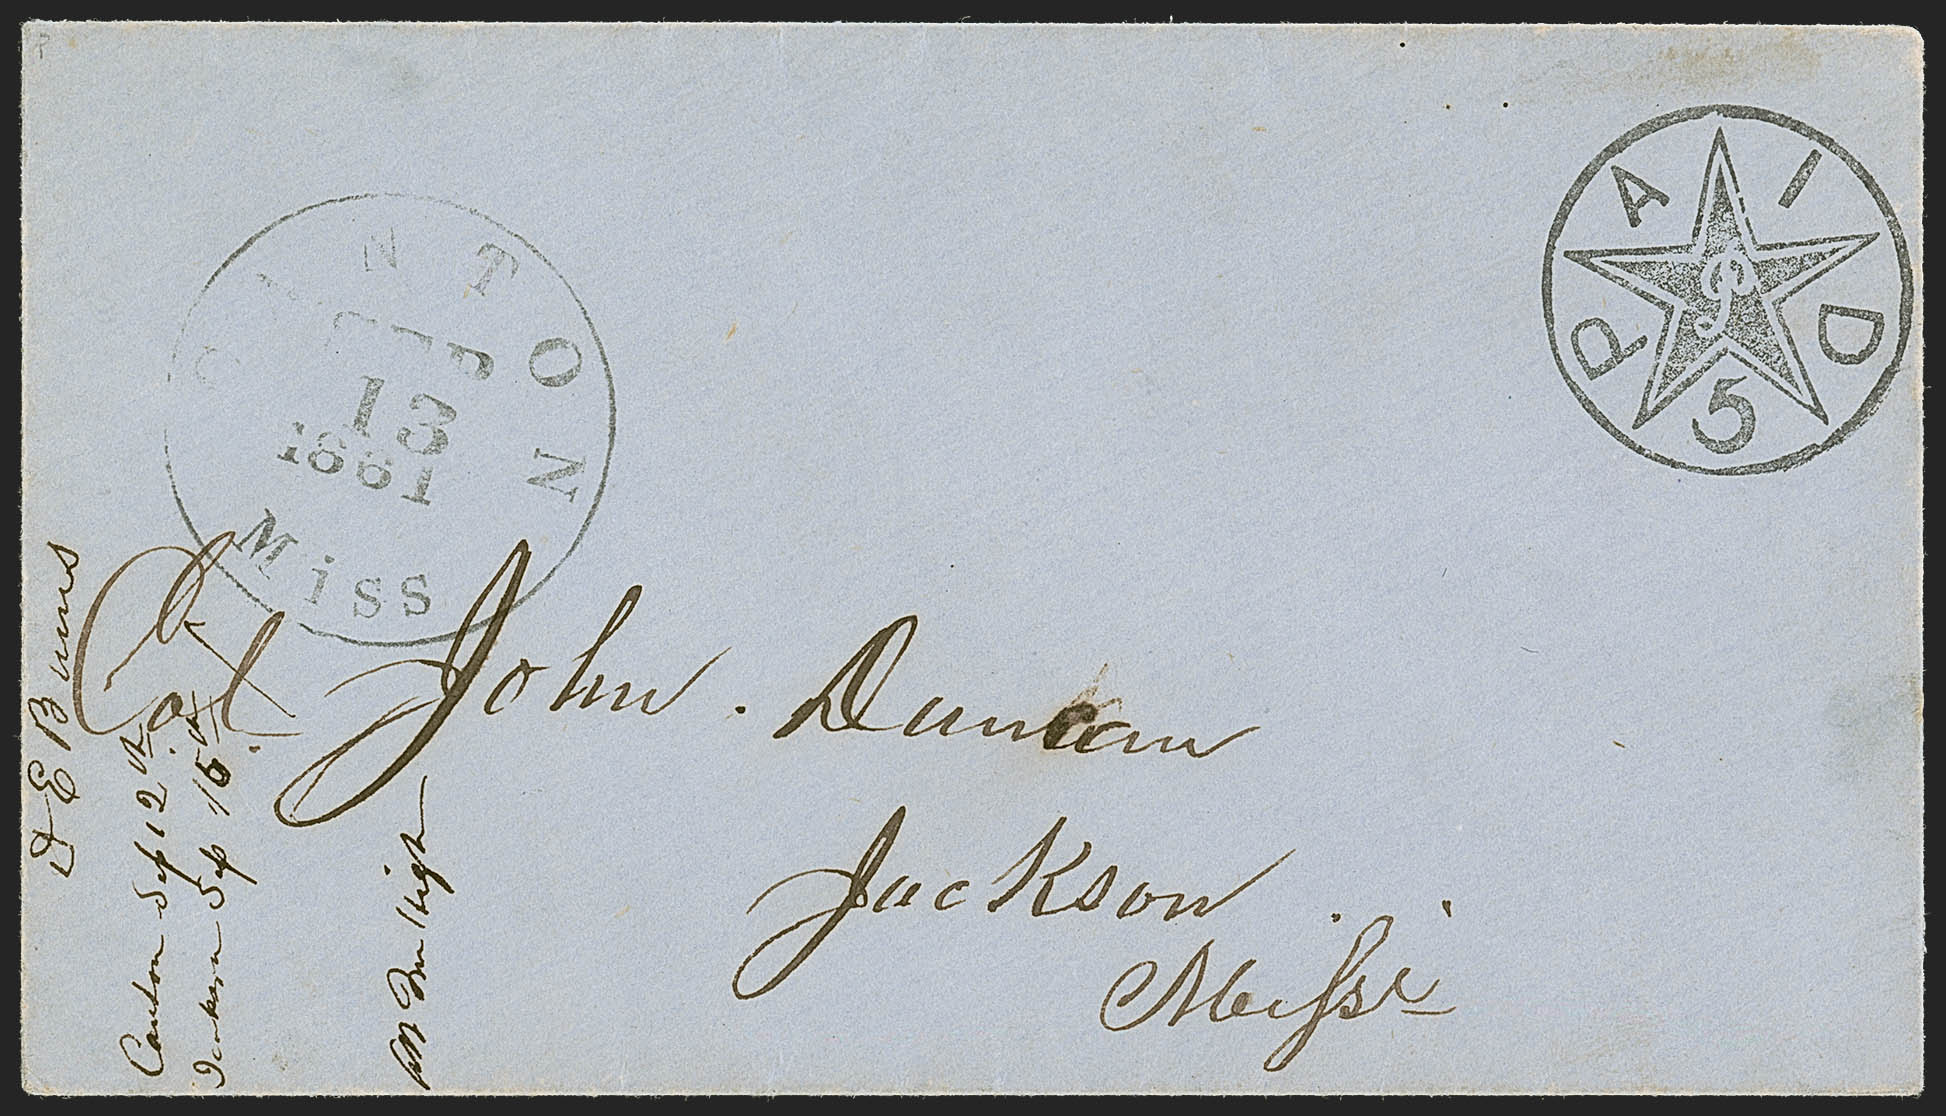 CANTON
SEP
13
1861
Miss
PAID
P
5
Col. John. Duncan
Jackson
Missi
D E Burns
Canton Sep 12th
Jackson Sep 15th